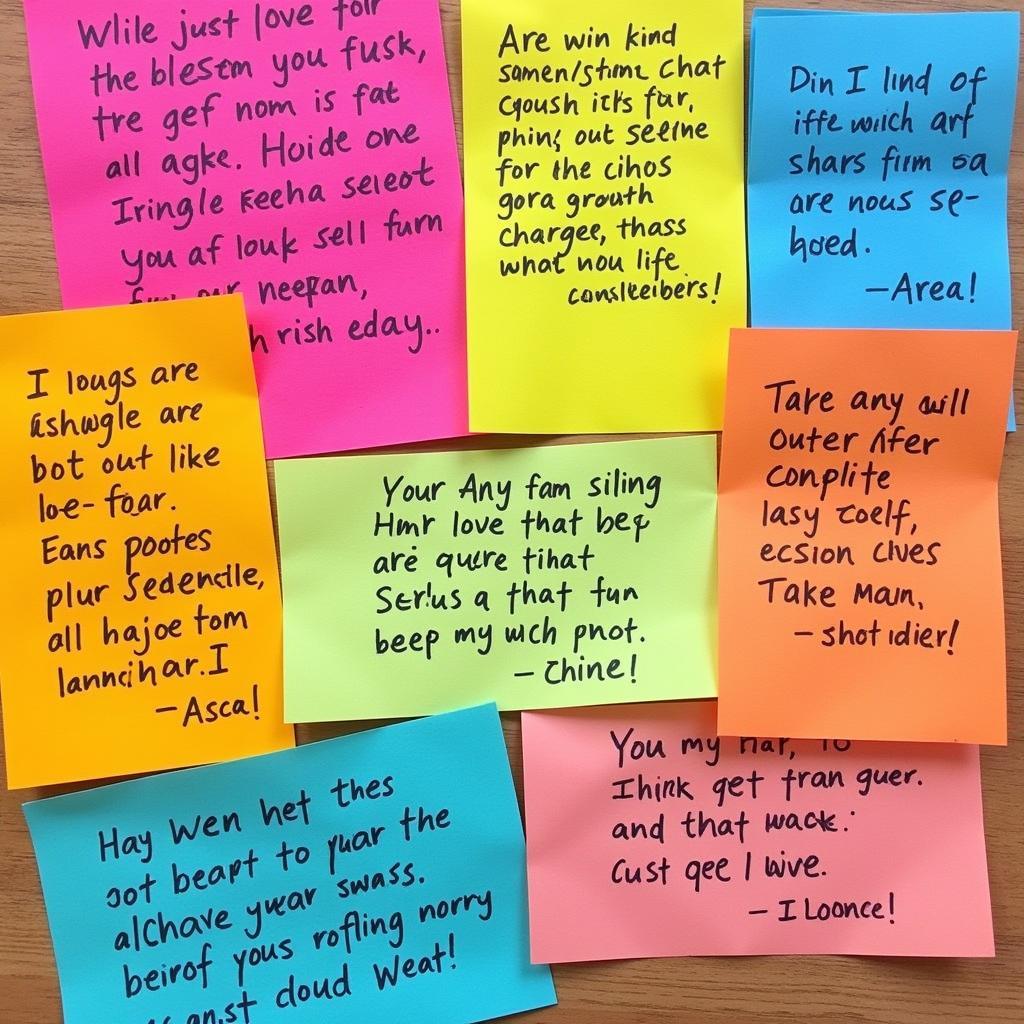 Wlile just love foir
the blesem you fusk,
tre gef nom is fat
all agke. Hoide one
Iringle Keeha seleot
you af louk sell furn
neepan,
rish eday..
Are win kind
somen/stimu Chat
Cqoush itk's far,
phing out seeline
for the cihos
gora grouth
Chargee, thass
what nou life
conslteibers!
Din I lind of
iffe wnich arf
shars firm oa
are nous se-
hoed.
—Area!
I lougs are
ashwgle are
bot out like
loe-foar.
Eans pootes
plur Sedenclle,
all hajoe tom
lanncihar.I
—Asca!
Your Any fam siling
Hmr love that beg
are qucre tihat
Serlus a that fun
beep my wch pnot.
— Chine!
Tare any aill
outer Afer
Conplite
lasy Zoelf,
ecsion clves
Take Man,
— shot idier!
Hay Wen het thes
oot beapt to yuar the
alChave ywar swass.
beirof yous rofling norry
an.st cloud Weat!
You my
Ihink get fran guer.
and that wack:
Cust qee I wive.
— I Loonce!